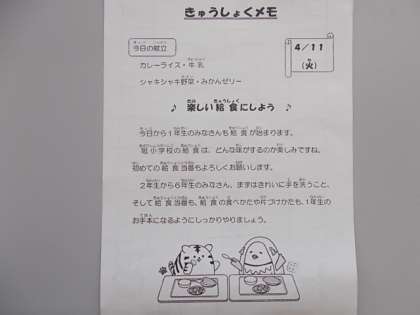 きゅうしょくメモ
今日の献立
4/11
(火)
カレーライス・牛乳
シャキシャキ野菜・みかんゼリー
♪ 楽しい給食にしよう ♪
今日から1年生のみなさんも給食が始まります。
小学校の給食は、どんな味がするのか楽しみですね。
初めての給食当番もよろしくお願いします。
2年生から6年生のみなさん、まずはきれいに手を洗うこと、
そして給食当番も、給食の食べかたや片づけかたも、1年生の
お手本になるようにしっかりやりましょう。